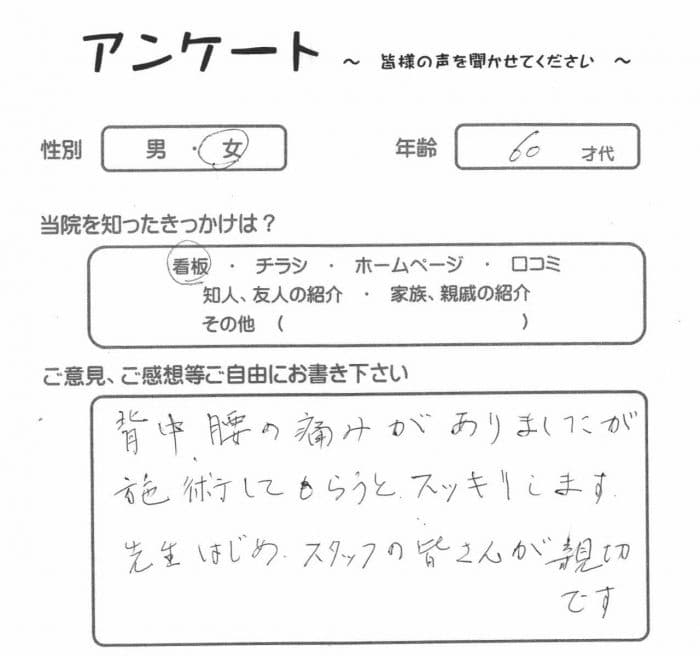 アンケート ～ 皆様の声を聞かせてください ～
性別 男 ・ 女 年齢 60 才代
当院を知ったきっかけは？
看板 ・ チラシ ・ ホームページ ・ 口コミ
知人、友人の紹介 ・ 家族、親戚の紹介
その他 （ ）
ご意見、ご感想等ご自由にお書き下さい
背中 腰の痛みがありましたが
施術してもらうと、スッキリします。
先生はじめ、スタッフの皆さんが親切
です